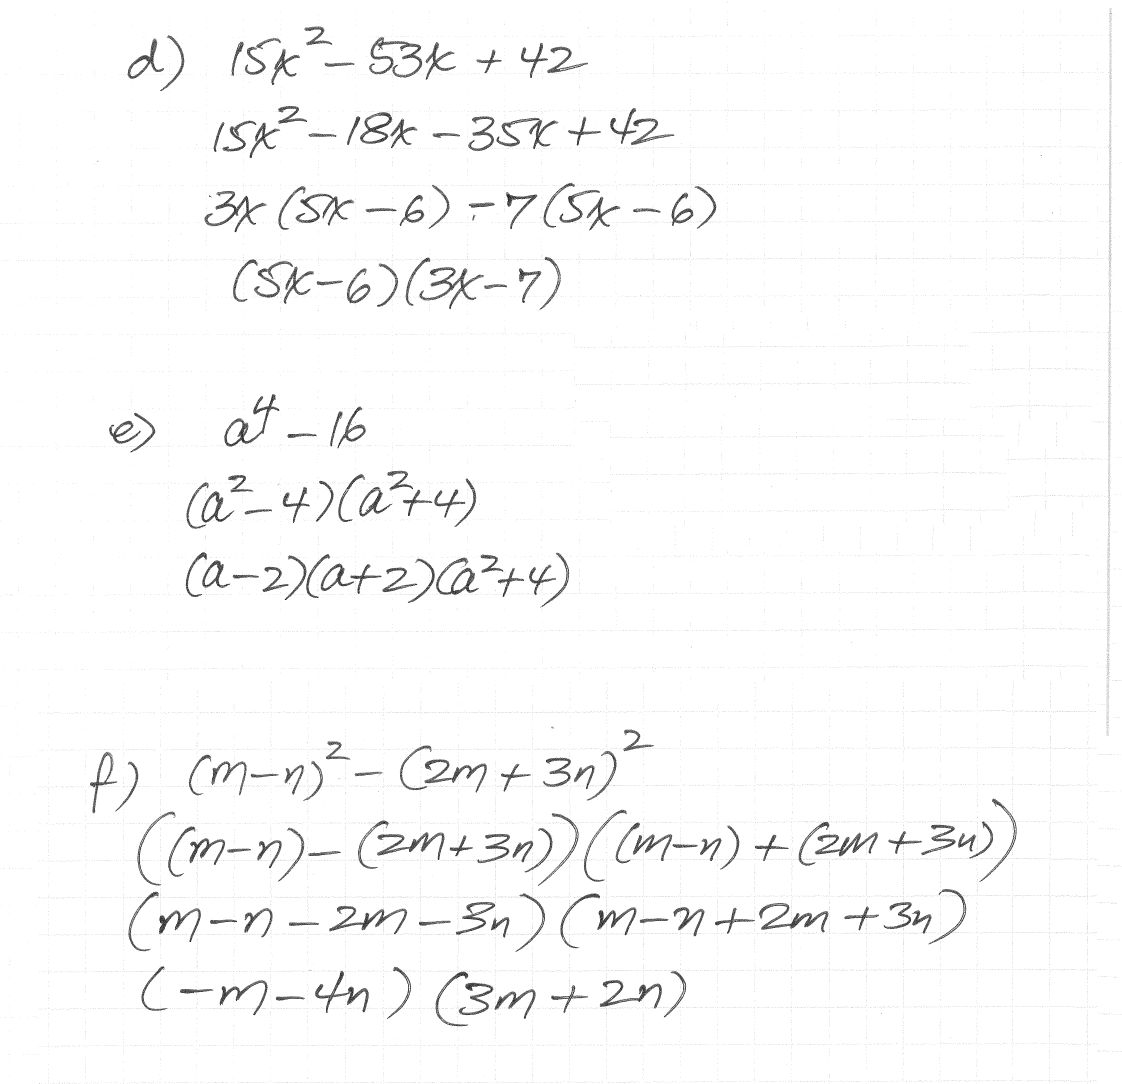 d) 15x² - 53x + 42
15x² - 18x - 35x + 42
3x (5x - 6) - 7(5x - 6)
(5x - 6)(3x - 7)
e) a⁴ - 16
(a² - 4)(a² + 4)
(a - 2)(a + 2)(a² + 4)
f) (m - n)² - (2m + 3n)²
((m - n) - (2m + 3n))((m - n) + (2m + 3n))
(m - n - 2m - 3n)(m - n + 2m + 3n)
(-m - 4n)(3m + 2n)